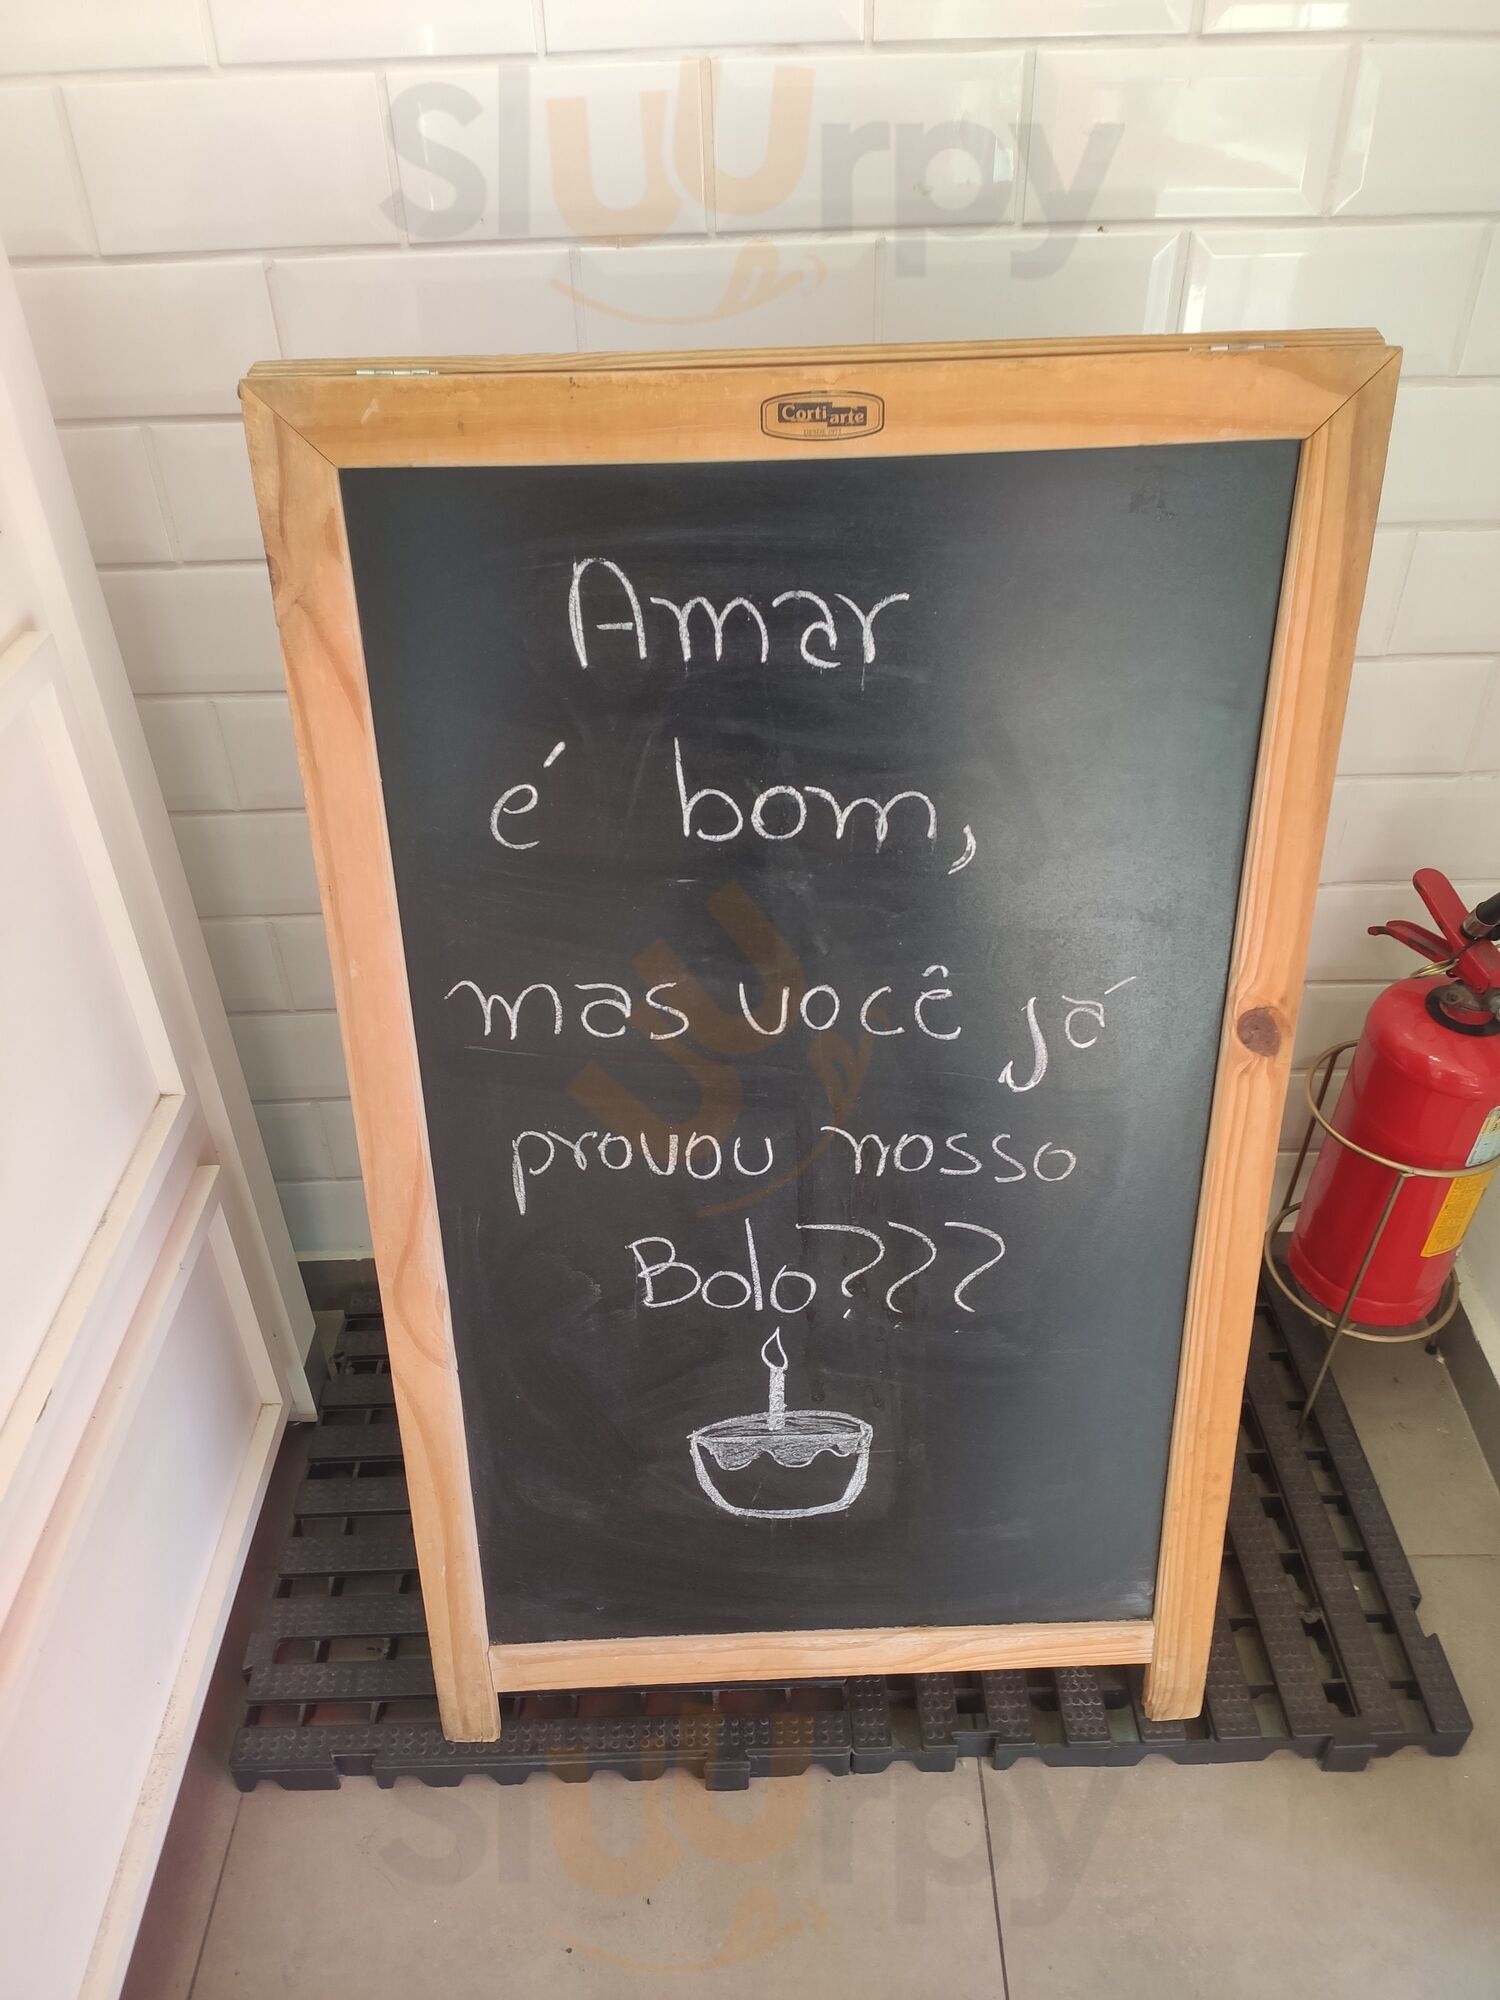 sluurpy
Corti arte
DESDE 1971
Amar
é bom,
mas você já
provou nosso
Bolo???
sluurpy